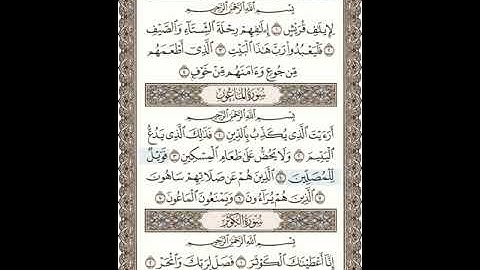 بِسْمِ ٱللَّهِ ٱلرَّحْمَٰنِ ٱلرَّحِيمِ
لِإِيلَٰفِ قُرَيْشٍ ١ إِۦلَٰفِهِمْ رِحْلَةَ ٱلشِّتَآءِ وَٱلصَّيْفِ
٢ فَلْيَعْبُدُوا۟ رَبَّ هَٰذَا ٱلْبَيْتِ ٣ ٱلَّذِىٓ أَطْعَمَهُم
مِّن جُوعٍ وَءَامَنَهُم مِّنْ خَوْفٍۭ ٤
سُورَةُ ٱلْمَاعُونِ
بِسْمِ ٱللَّهِ ٱلرَّحْمَٰنِ ٱلرَّحِيمِ
أَرَءَيْتَ ٱلَّذِى يُكَذِّبُ بِٱلدِّينِ ١ فَذَٰلِكَ ٱلَّذِى يَدُعُّ
ٱلْيَتِيمَ ٢ وَلَا يَحُضُّ عَلَىٰ طَعَامِ ٱلْمِسْكِينِ ٣ فَوَيْلٌ
لِّلْمُصَلِّينَ ٤ ٱلَّذِينَ هُمْ عَن صَلَاتِهِمْ سَاهُونَ
٥ ٱلَّذِينَ هُمْ يُرَآءُونَ ٦ وَيَمْنَعُونَ ٱلْمَاعُونَ ٧
سُورَةُ ٱلْكَوْثَرِ
بِسْمِ ٱللَّهِ ٱلرَّحْمَٰنِ ٱلرَّحِيمِ
إِنَّآ أَعْطَيْنَٰكَ ٱلْكَوْثَرَ ١ فَصَلِّ لِرَبِّكَ وَٱنْحَرْ ٢